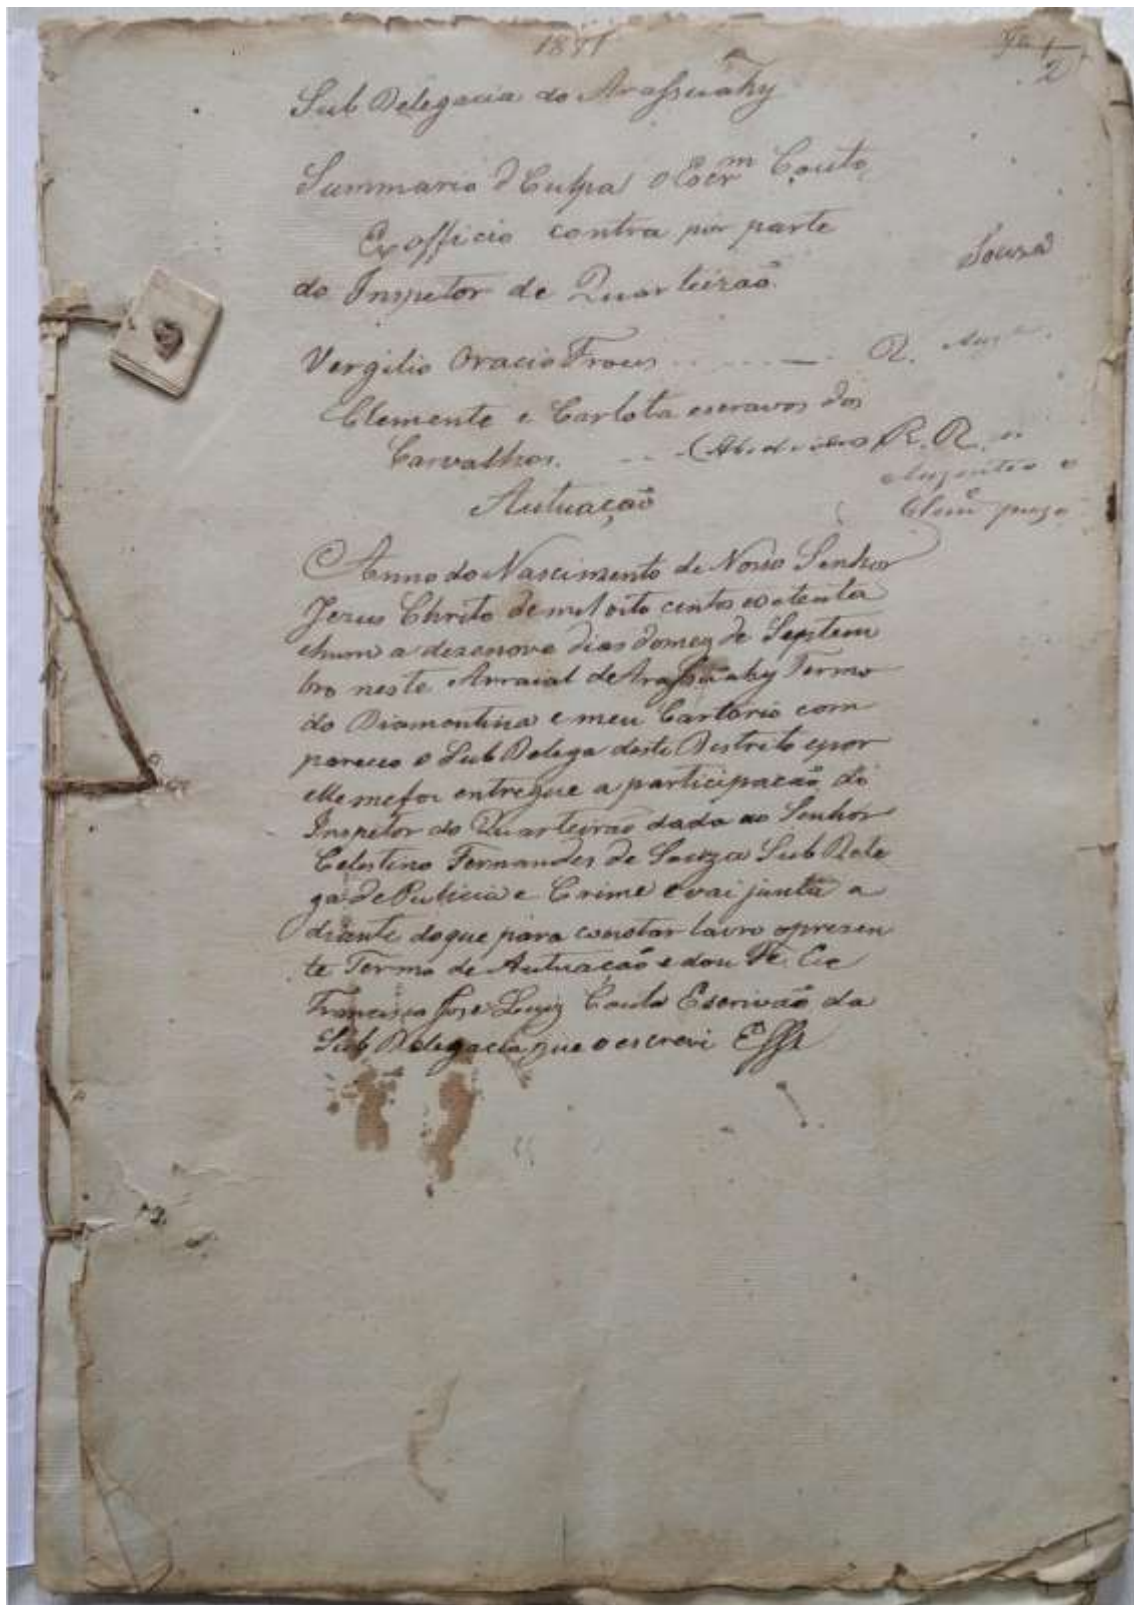 1871
2
Sub Delegacia do Arassuahy
Summario d Culpa o Escrm Couto
Ex officio contra por parte
do Inspetor de Quarteirão
Souza
Vergilio Oracio Froes R.
Clemente e Carlota escravos dos
Carvalhos. R. R.
Autuação
Anno do Nascimento de Nosso Senhor
Jezus Christo de mil oito centos e otenta
ehum a dezenove dias domez de Septem
bro neste Arraial de Arassuahy Termo
do Diamontina e meu Cartorio com
pareceo o Sub Delega deste Destrito epor
elle mefoi entregue a participação do
Inspetor do Quarteirão dada ao Senhor
Celestino Fernandes de Souza Sub Dele
ga de Pulicia e Crime e vai junta a
diante doque para constar lavro opresen
te Termo de Autuação e dou Fé. Eu
Francisco Jose Luiz Couto Escrivão da
Sub Delegacia que o escrevi